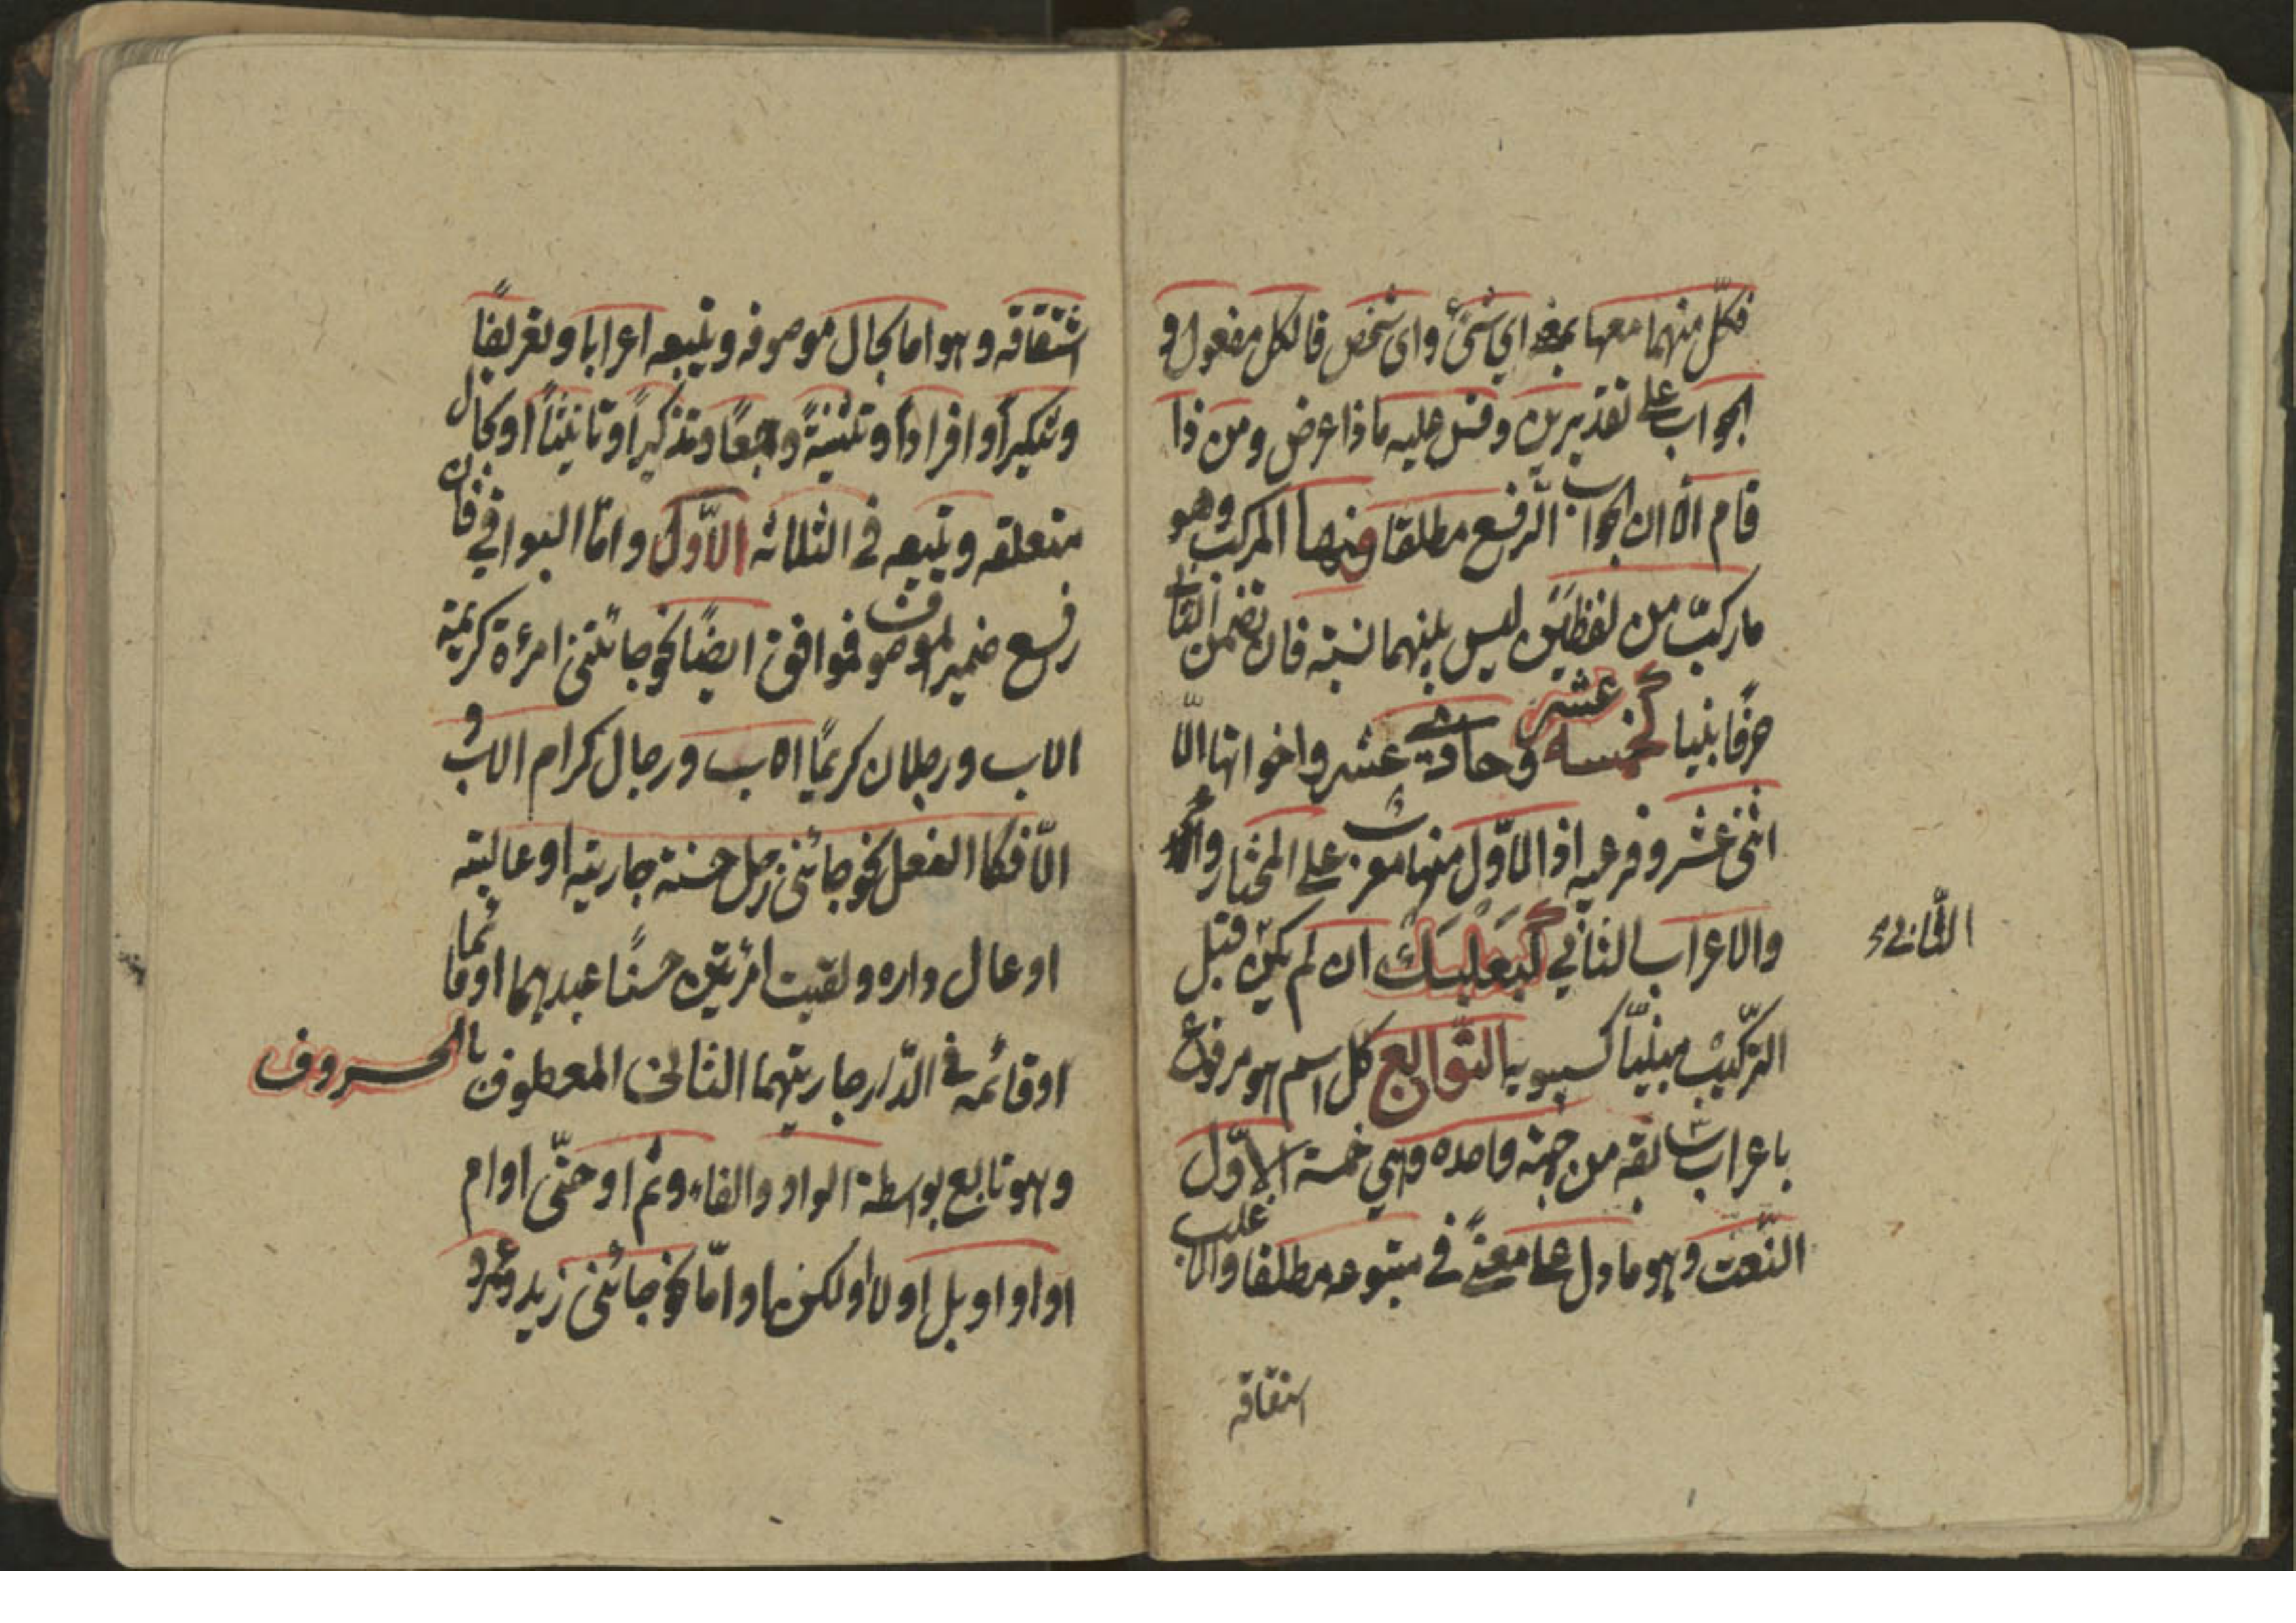 فكلّ منهما معها بمعنى اي شئ واى شخص فالكل مفعول و
الجواب على تقديرين وقس عليه ماذا عرض ومن ذا
قام الا ان الجواب الرفع مطلقا ومنها المركب وهو
ماركّب من لفظين ليس بينهما نسبته فان تضمن الثانى
حرفًا بنيا كخمسة عشر وحادى عشر واخواتها الّا
اثنى عشر وفرعيه اذ الاوّل منها معرب على المختار والّا
والاعراب الثاني كبعلبك ان لم يكن قبل
الثانى
التركيب مبنيّاً كسيبويه التوابع كل اسم هو مرفوع
باعراب سابقه من جهته واحده وهي خمسة الاوّل
النّعت وهو مادل على معنىً في متبوعه مطلقا والاغلب
اشتقاقه
اشتقاقه وهو اما بحال موصوفه ويتبعه اعرابا وتعريفاً
وتنكيراً وافراداً وتثنيةً وجمعًا وتذكيراً وتانيثاً او بحال
متعلقه ويتبعه في الثلاثه الاوّل وامّا البواقي فان
رفع ضمير الموصوف فموافق ايضًا نحو جائتنى امرأة كريمة
الاب ورجلان كريمًا الاب ورجال كرام الاب و
الّا فكالفعل نحو جائنى رجل حسنة جاريته او عاليته
او عال داره ولقيت امرئتين حسنًا عبدهما او قائما
او قائمه في الدّار جاريتهما الثانى المعطوف بالحروف
وهو تابع بواسطة الواو والفاء وثم او حتّى او ام
او او او بل او لا او لكن او امّا نحو جائنى زيد وعمرو